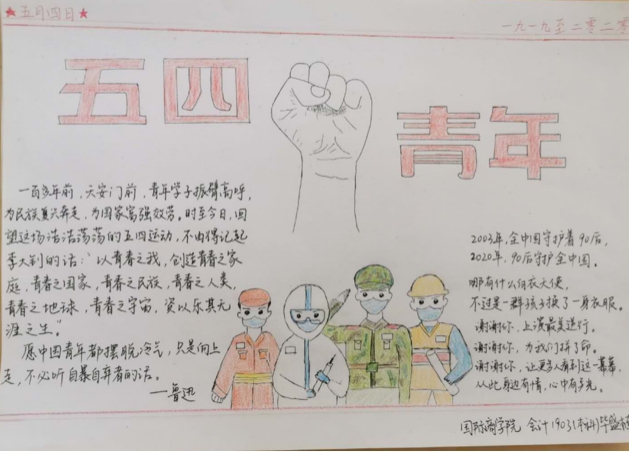 ★五月四日★
一九一九至二零二零
五四
青年
一百多年前，天安门前，青年学子振臂高呼，
为民族复兴奔走，为国家富强效劳。时至今日，回
望这场浩浩荡荡的五四运动，不由得记起
李大钊的话：“以青春之我，创造青春之家
庭，青春之国家，青春之民族，青春之人类，
青春之地球，青春之宇宙，资以乐其无
涯之生。”
愿中国青年都摆脱冷气，只是向上
走，不必听自暴自弃者的话。
—鲁迅
2003年，全中国守护着90后，
2020年，90后守护全中国。
哪有什么白衣天使，
不过是一群孩子换了一身衣服。
谢谢你，上演最美逆行。
谢谢你，为我们拼了命。
谢谢你，让更多人看到这一幕幕
从此身边有情，心中有光。
国际商学院 会计1903(本科)毕盛